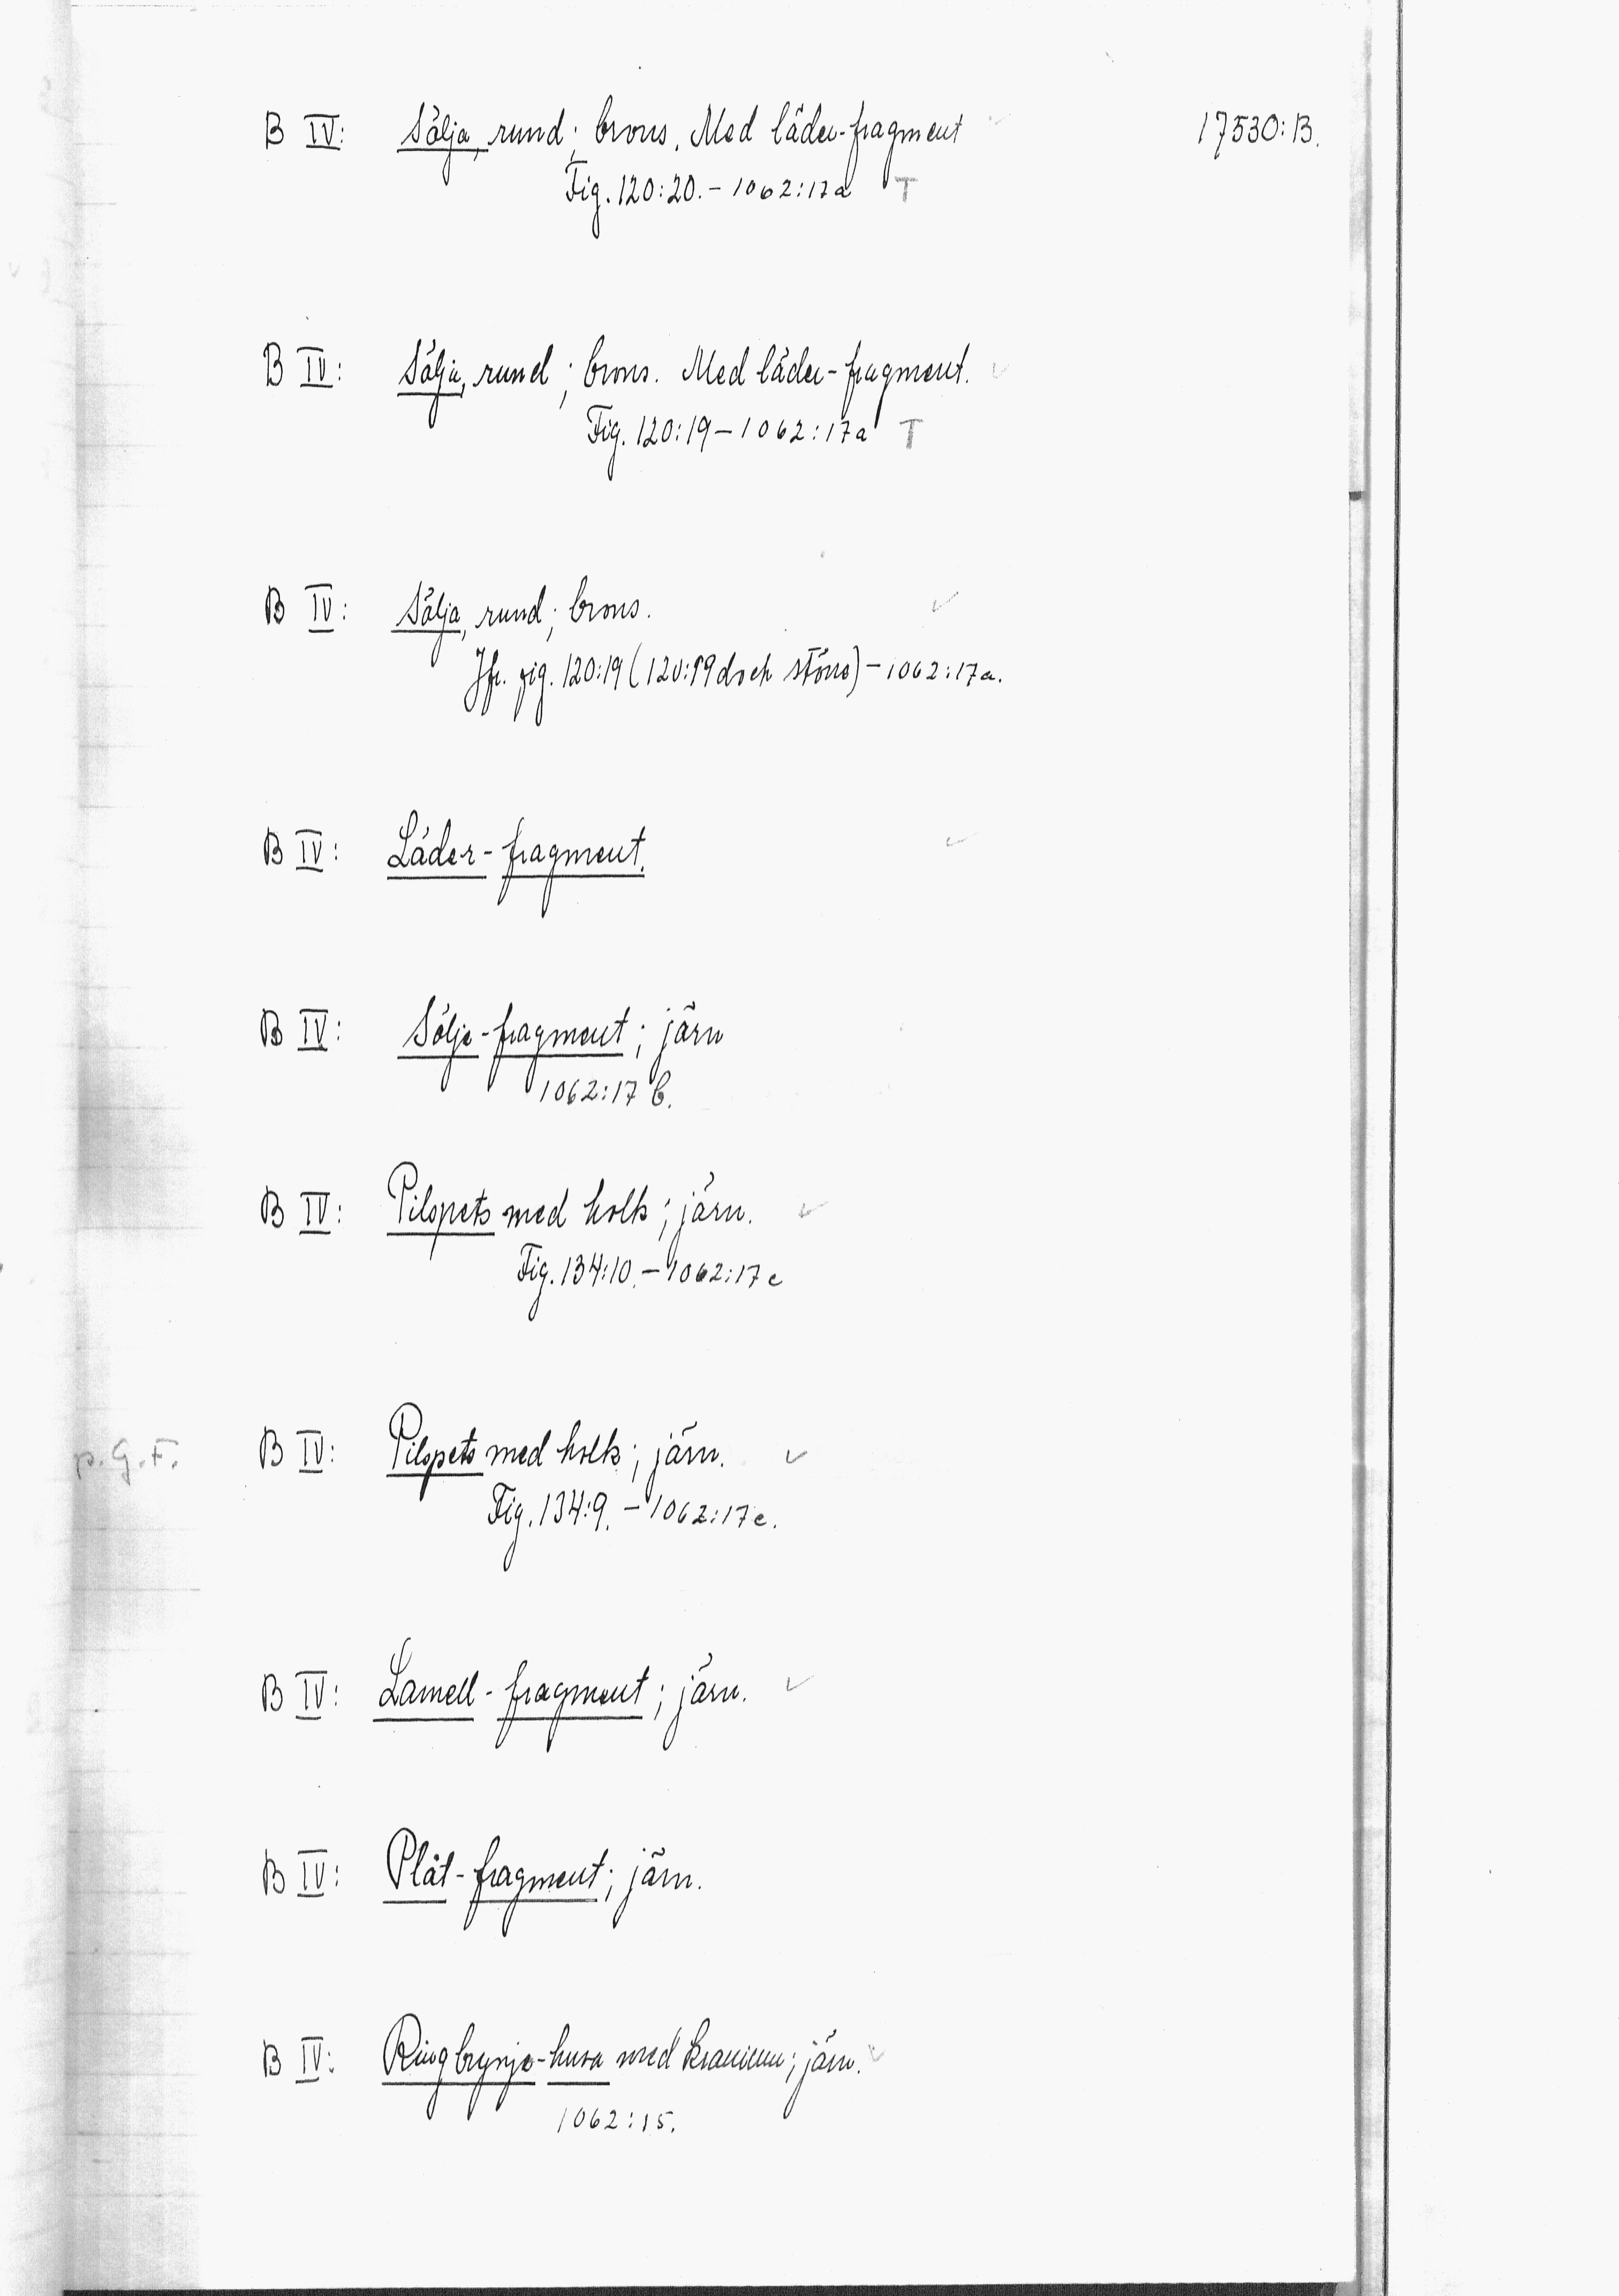 17530:B.
B IV: Sölja, rund; brons. Med läder-fragment
Fig. 120:20. - 1062:17a T
B IV: Sölja, rund; brons. Med läder-fragment.
Fig. 120:19 - 1062:17a T
B IV: Sölja, rund; brons.
Jfr. fig. 120:19 (120:19 dock större) - 1062:17a.
B IV: Läder-fragment.
B IV: Sölje-fragment; järn
1062:17 b.
B IV: Pilspets med holk; järn.
Fig. 134:10. - 1062:17c
p.G.F. B IV: Pilspets med holk; järn.
Fig. 134:9. - 1062:17c.
B IV: Lamell-fragment; järn.
B IV: Plåt-fragment; järn.
B IV: Ringbrynje-huva med kranium; järn.
1062:15.